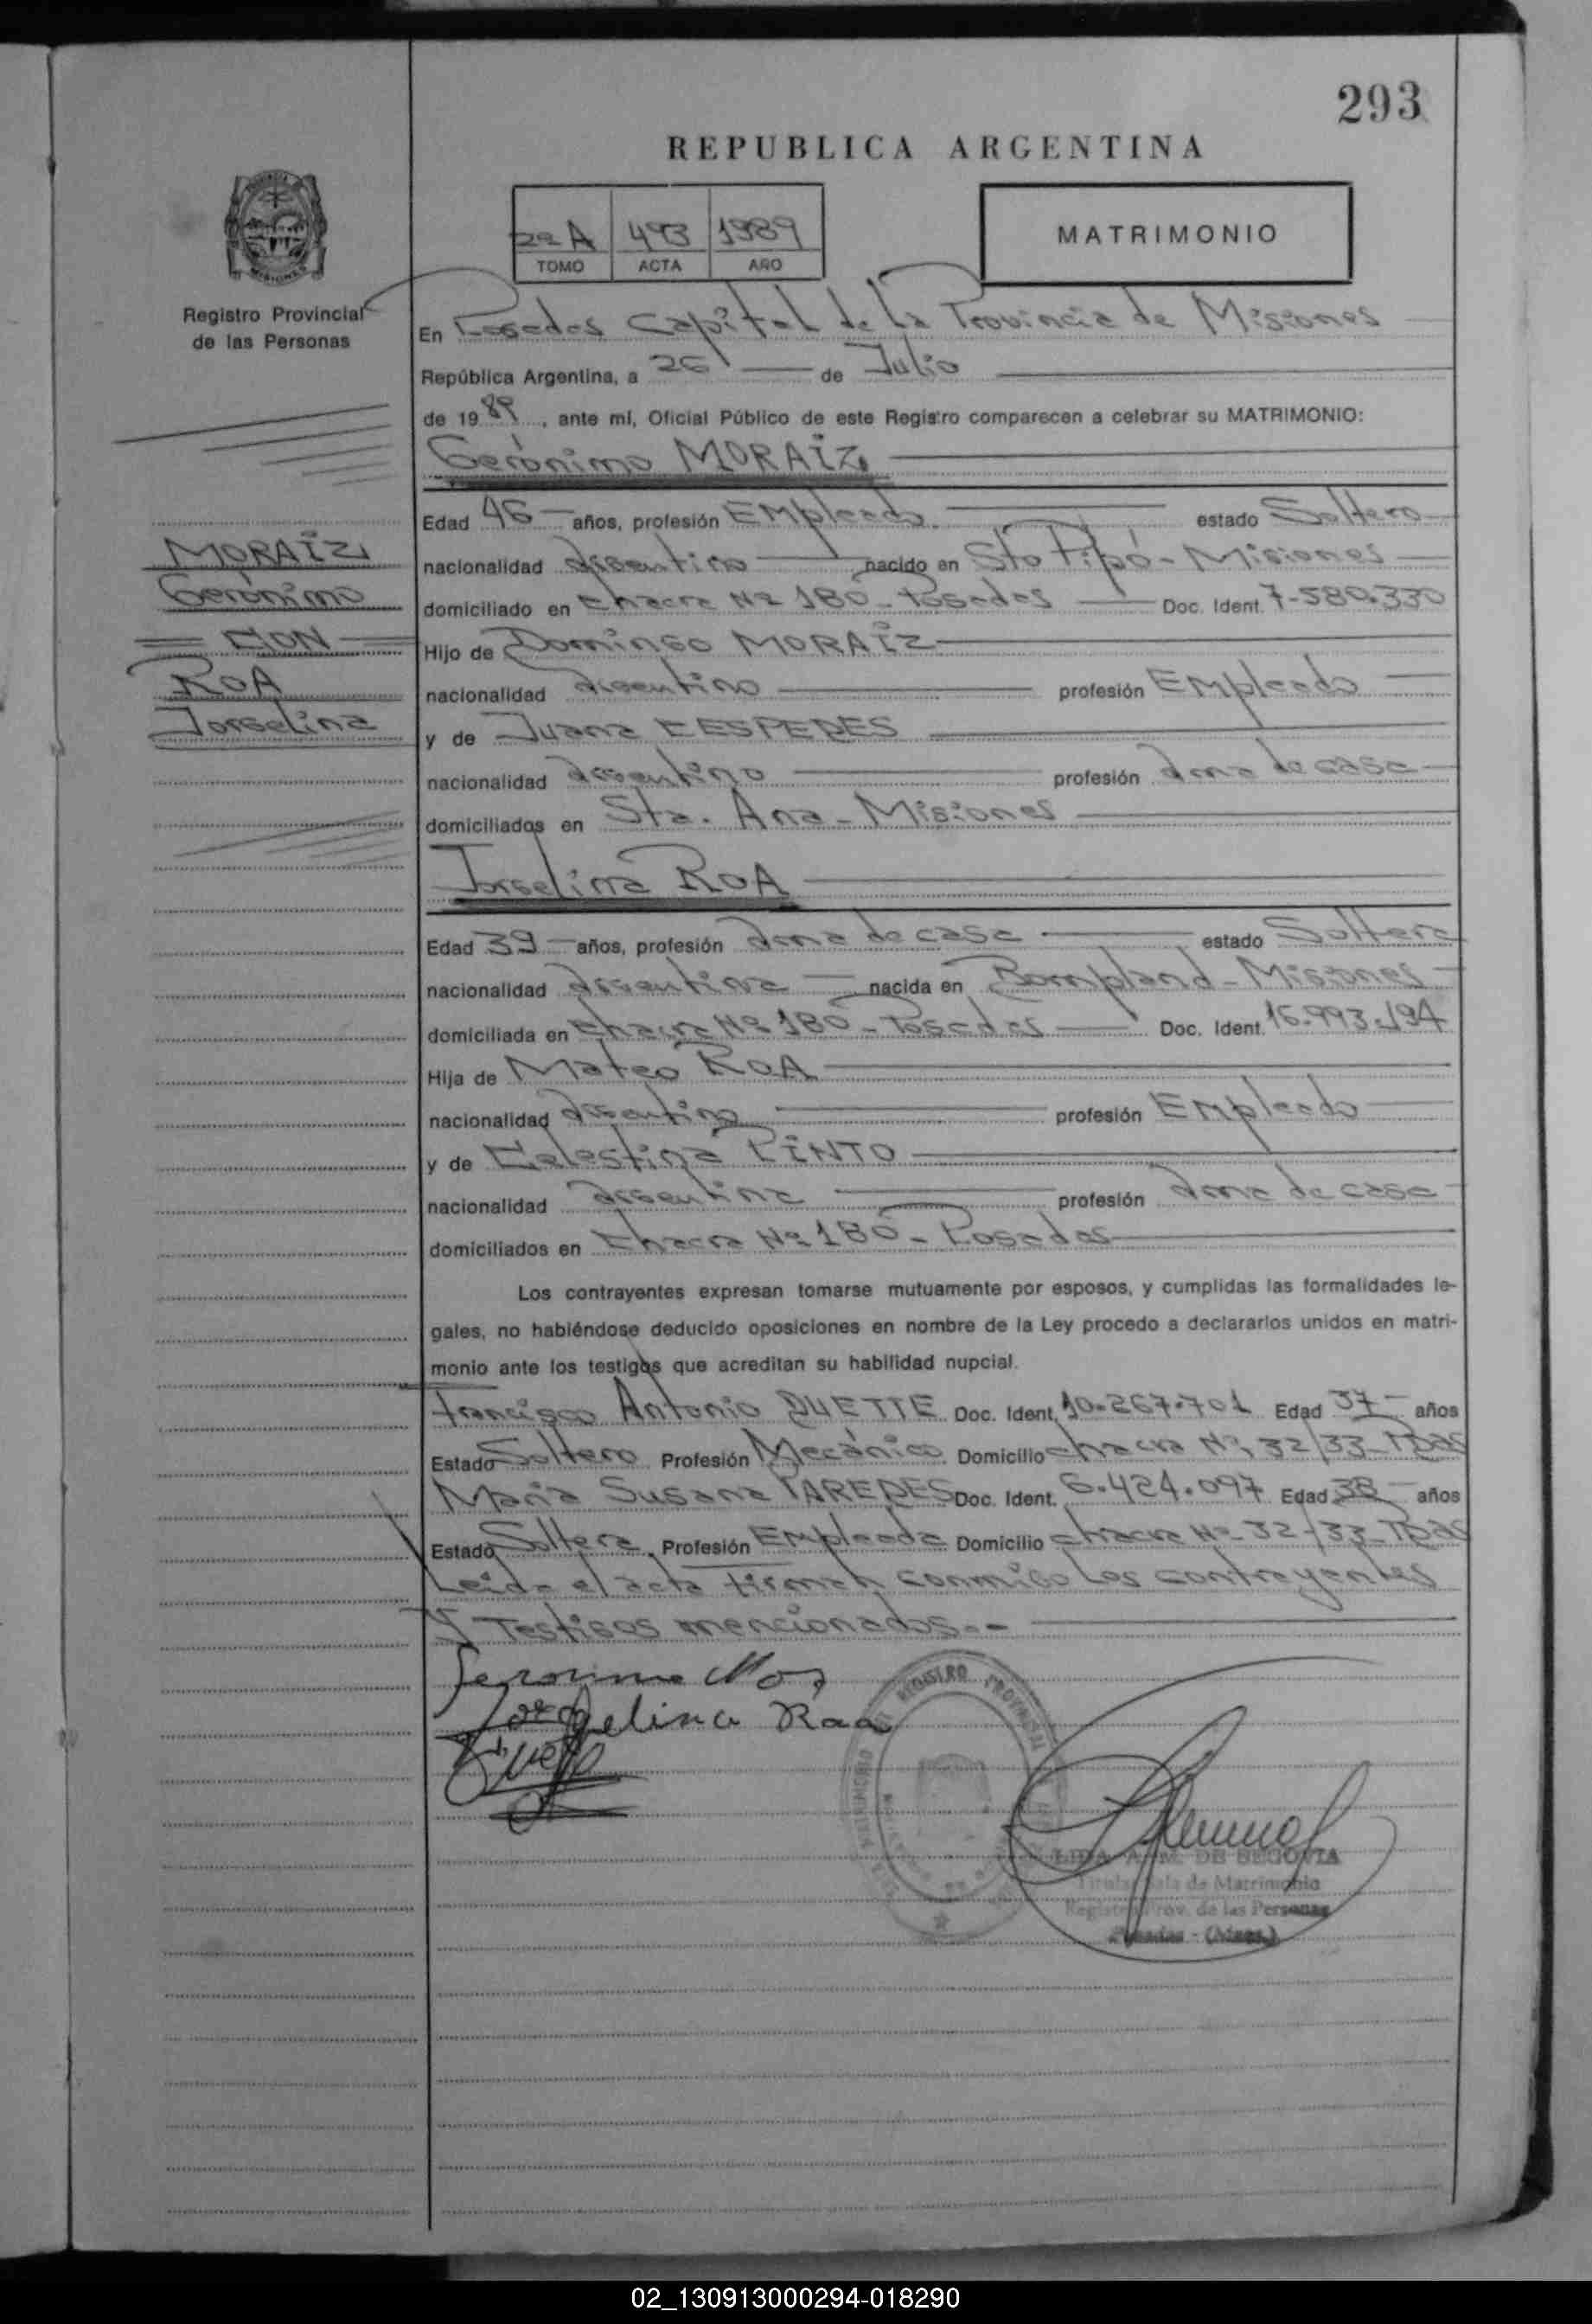 293
REPUBLICA ARGENTINA
2º A 493 1989
TOMO ACTA AÑO
MATRIMONIO
Registro Provincial
de las Personas
MORAIZ
Gerónimo
CON
ROA
Jorgelina
En Posadas Capital de la Provincia de Misiones
República Argentina, a 26 de Julio
de 1989, ante mí, Oficial Público de este Registro comparecen a celebrar su MATRIMONIO:
Gerónimo MORAIZ
Edad 46 años, profesión Empleado estado Soltero
nacionalidad argentino nacido en Sto Pipó - Misiones
domiciliado en Chacra Nº 180 - Posadas Doc. Ident. 7.580.330
Hijo de Domingo MORAIZ
nacionalidad argentino profesión Empleado
y de Juana CESPEDES
nacionalidad argentino profesión ama de casa
domiciliados en Sta. Ana - Misiones
Jorgelina ROA
Edad 39 años, profesión ama de casa estado Soltera
nacionalidad argentina nacida en Bompland - Misiones
domiciliada en Chacra Nº 180 - Posadas Doc. Ident. 16.993.194
Hija de Mateo ROA
nacionalidad argentino profesión Empleado
y de Celestina PINTO
nacionalidad argentina profesión ama de casa
domiciliados en Chacra Nº 180 - Posadas
Los contrayentes expresan tomarse mutuamente por esposos, y cumplidas las formalidades le-
gales, no habiéndose deducido oposiciones en nombre de la Ley procedo a declararlos unidos en matri-
monio ante los testigos que acreditan su habilidad nupcial.
Francisco Antonio DUETTE Doc. Ident. 10.267.701 Edad 37 años
Estado Soltero Profesión Mecánico Domicilio chacra Nº 32/33 - Pdas
María Susana PAREDES Doc. Ident. 6.424.097 Edad 38 años
Estado Soltera Profesión Empleada Domicilio chacra Nº 32/33 - Pdas
Leida el acta firman conmigo los contrayentes
y testigos mencionados.-
Jorgelina Roa
REGISTRO PROVINCIAL
LIDIA A. M. DE SEGOVIA
Titular Sala de Matrimonio
Registro Prov. de las Personas
Posadas - (Mnes.)
02_130913000294-018290